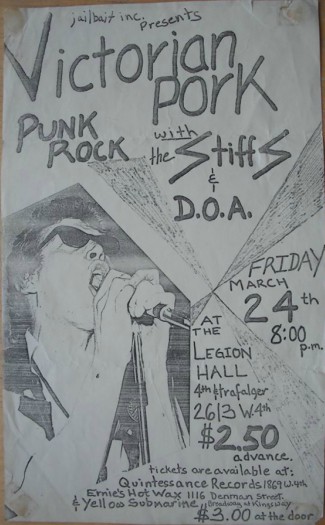 jailbait inc. presents
Victorian
Pork
PUNK
ROCK
with
the Stiffs
&
D.O.A.
FRIDAY
MARCH
24th
8:00
p.m.
AT
THE
LEGION
HALL
4th & trafalger
2613 W. 4th
$2.50
advance.
tickets are available at:
Quintessance Records 1869 w. 4th
Ernie's Hot Wax 1116 Denman Street.
& Yellow Submarine Broadway at Kingsway
$3.00 at the door